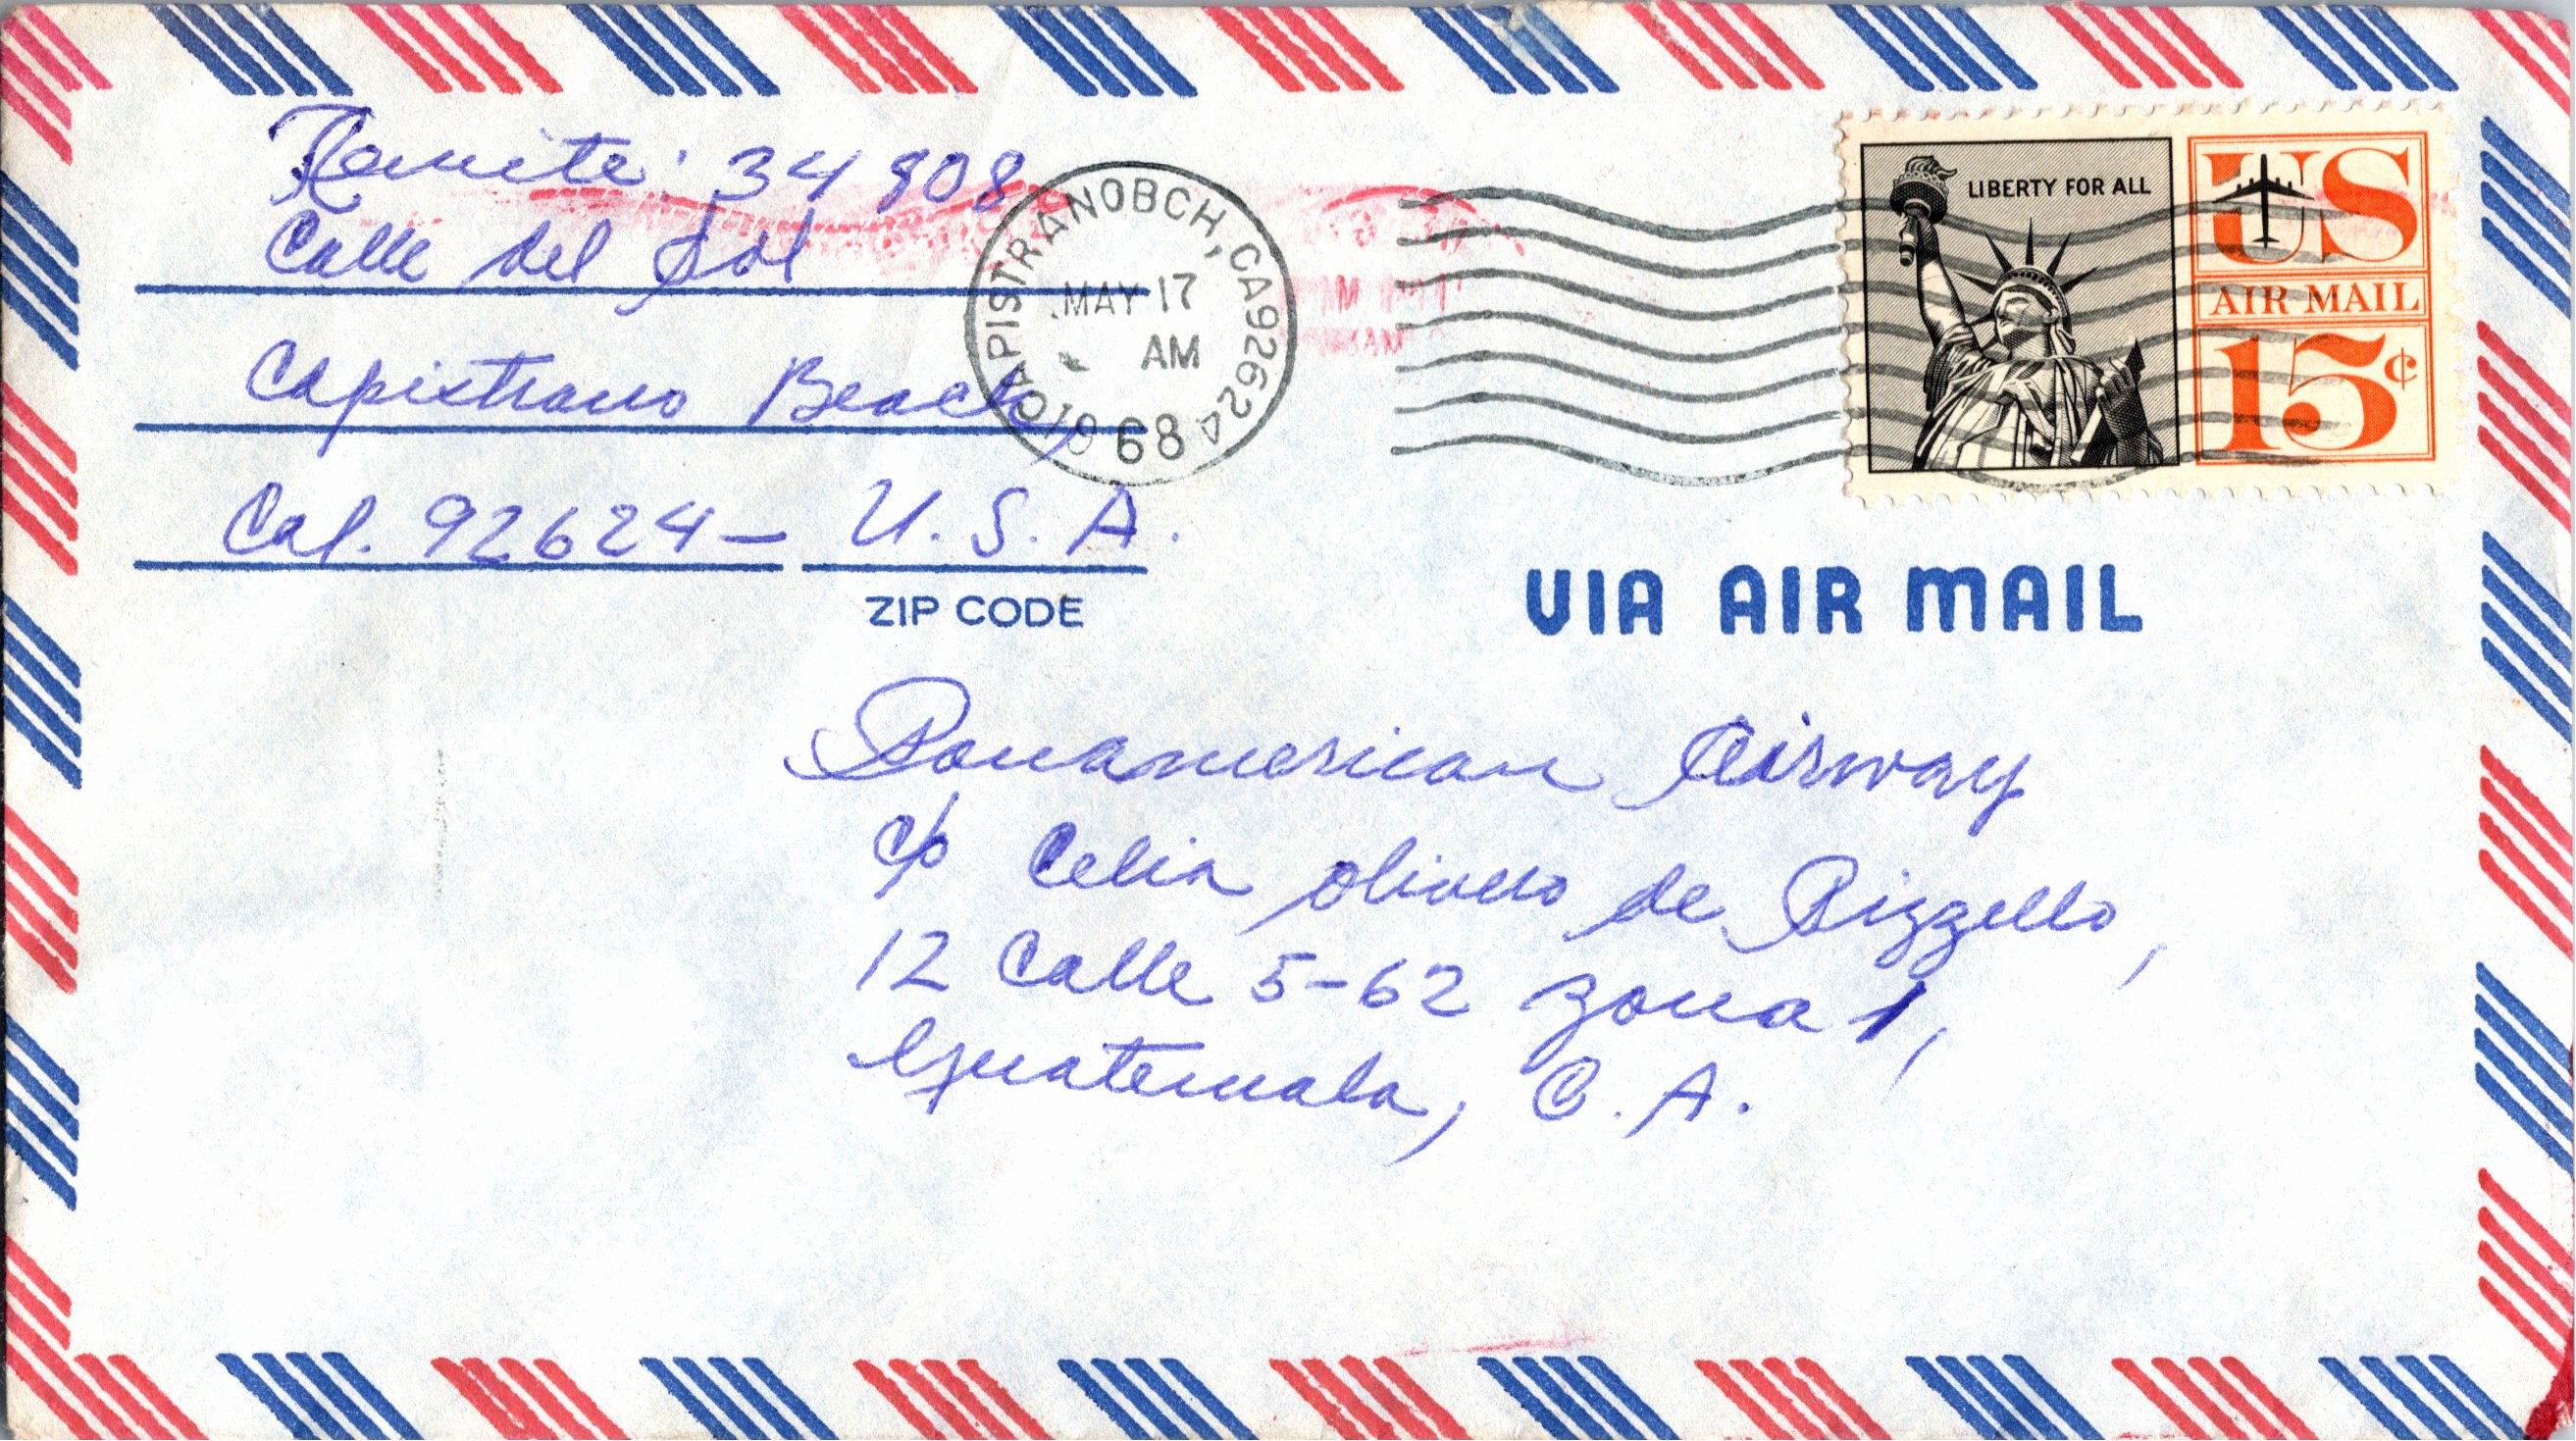 Remite: 34808
Calle del Sol
Capistrano Beach,
Cal. 92624- U.S.A.
ZIP CODE
CAPISTRANOBCH, CA92624
MAY 17
AM
1968
LIBERTY FOR ALL
US
AIR MAIL
15¢
VIA AIR MAIL
Panamerican Airway
c/o Celia Olivero de Rizzello,
12 Calle 5-62 zona 1,
Guatemala, C.A.